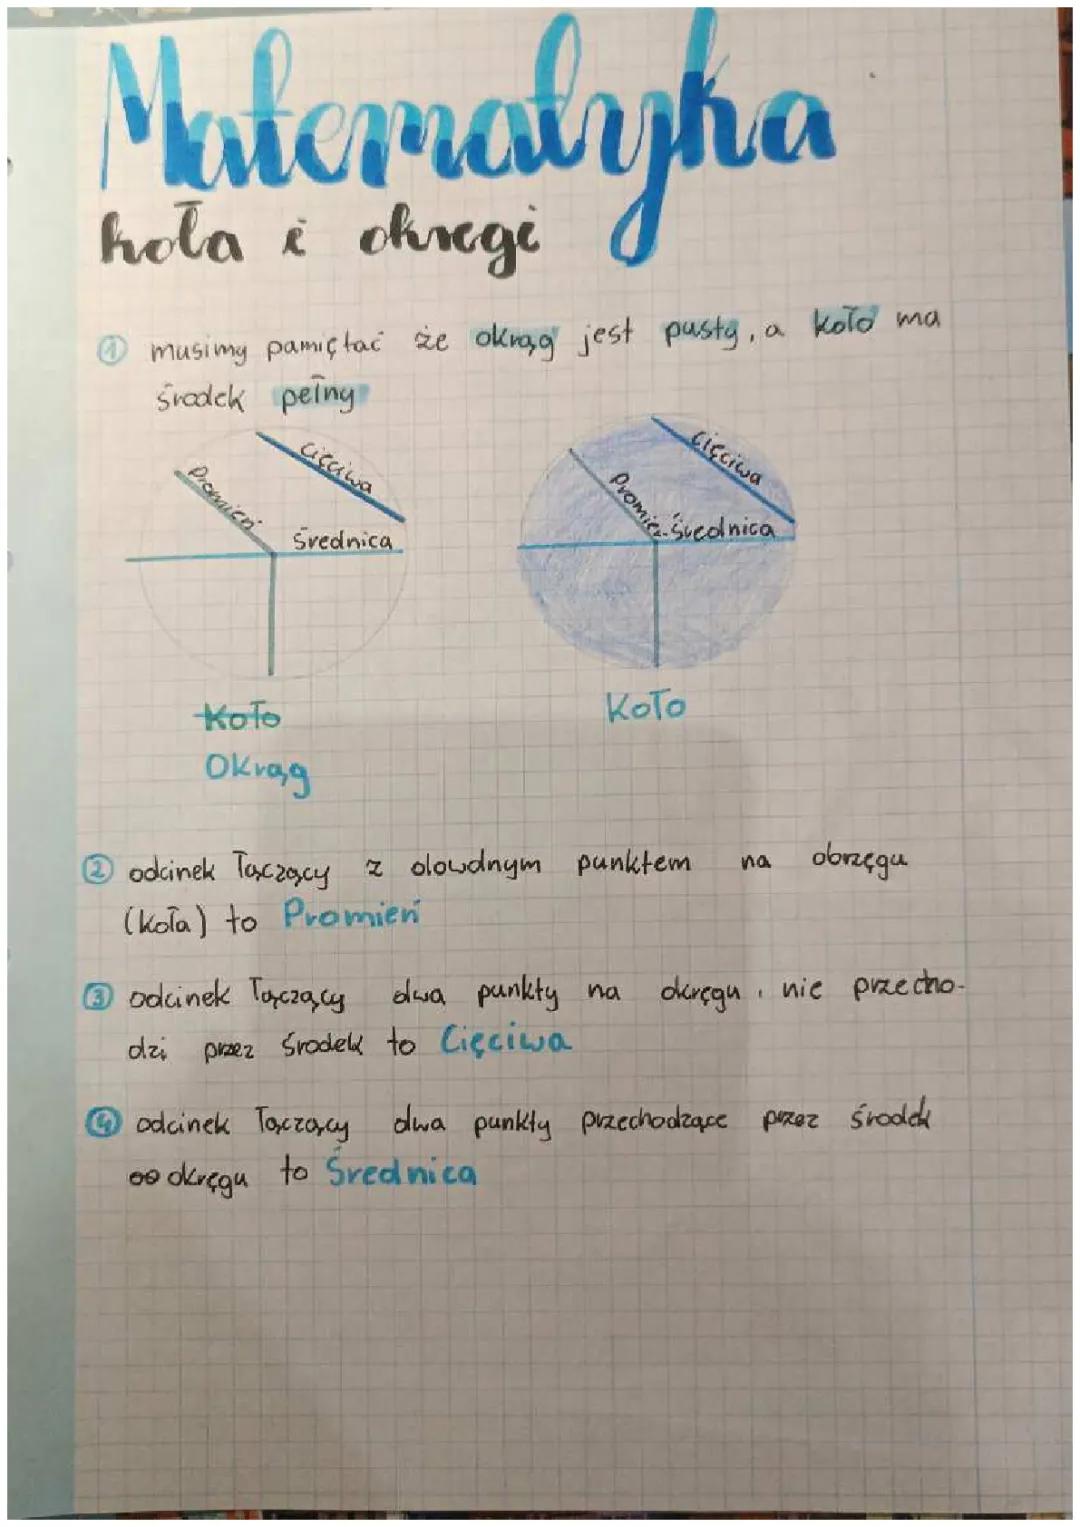 Matematyka
koła i okręgi
① musimy pamiętać że okrąg jest pusty, a koło ma
środek pełny
cięciwa
Promień
Średnica
cięciwa
Promień
Średnica
Koło
Okrąg
Koło
② odcinek łączący z dowolnym punktem na obrzęgu
(koła) to Promień
③ odcinek łączący dwa punkty na okręgu, nie przecho-
dzi przez środek to Cięciwa
④ odcinek łączący dwa punkty przechodzące przez środek
okręgu to Średnica